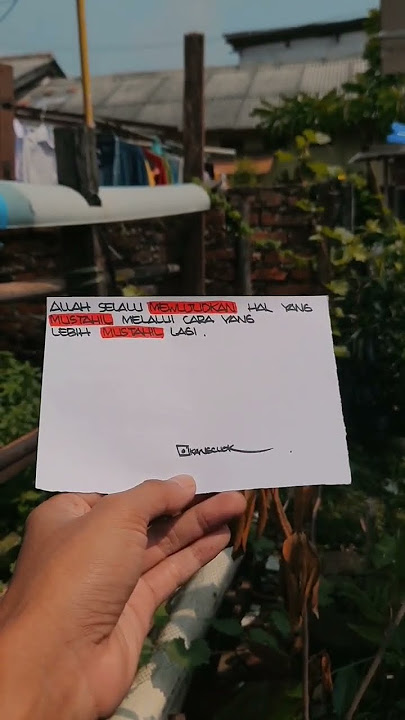 ALLAH SELALU MEWUJUDKAN HAL YANG
MUSTAHIL MELALUI CARA YANG
LEBIH MUSTAHIL LAGI.